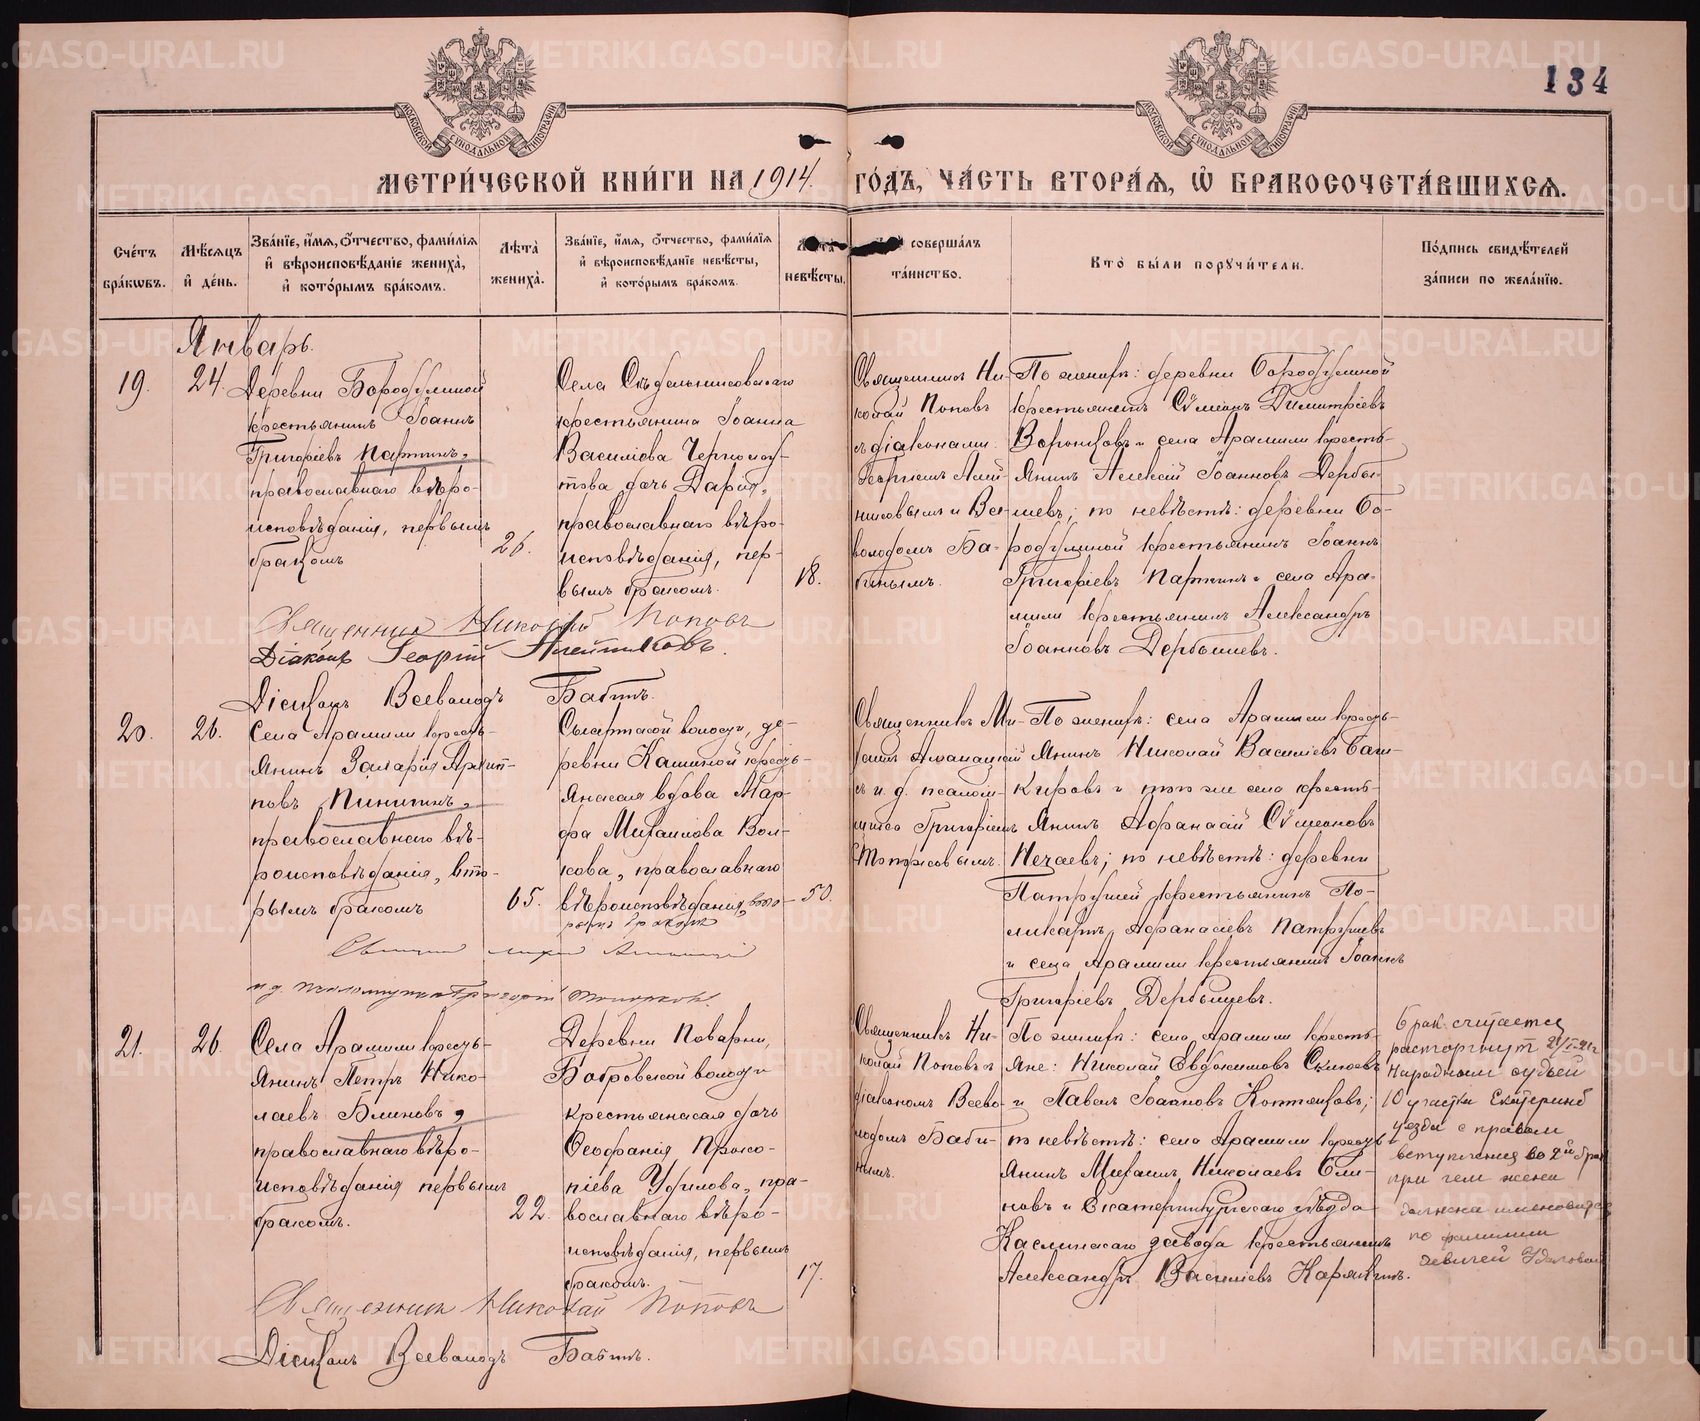 134
МЕТРИ́ЧЕСКОЙ КНИ́ГИ НА 1914 ГО́ДЪ, ЧА́СТЬ ВТОРА́Ѧ, Ѽ БРАКОСОЧЕТА́ВШИХСѦ.
Сче́тъ бра́кѡвъ.
Мѣ́сѧцъ и҆ де́нь.
Зва́нїе, и҆́мѧ, ѻ҆́тчество, фами́лїѧ и҆ вѣроисповѣ́данїе жениха̀, и҆ кото́рымъ бра́комъ.
Лѣ́та жениха̀.
Зва́нїе, и҆́мѧ, ѻ҆́тчество, фами́лїѧ и҆ вѣроисповѣ́данїе невѣ́сты, и҆ кото́рымъ бра́комъ.
невѣ́сты.
соверша́лъ та́инство.
Кто̀ бы́ли порꙋчи́тели.
По́дпись свидѣ́телей за́писи по жела́нїю.
Январь.
19.
24.
Деревни Бородулиной
крестьянинъ Іоаннъ
Григоріевъ Партинъ,
православнаго вѣро-
исповѣданія, первымъ
бракомъ
26.
Села
крестьянина Іоанна
Василіева
дочь Дарія,
православнаго вѣро-
исповѣданія, пер-
вымъ бракомъ.
18.
Священникъ Ни-
колай Поповъ
съ діаконами
Георгіемъ Алей-
никовымъ и Все-
володомъ Ба-
бинымъ.
По женихѣ: деревни Бородулиной
крестьянинъ Сѵмеонъ Димитріевъ
Воронцовъ и села Арамили кресть-
янинъ Алексій Іоанновъ Дербы-
шевъ; по невѣстѣ: деревни Бо-
родулиной крестьянинъ Іоаннъ
Григоріевъ Партинъ и села Ара-
мили крестьянинъ Александръ
Іоанновъ Дербышевъ.
Священникъ Николай Поповъ
Діаконъ Георгій Алейниковъ.
Діаконъ Всеволодъ Бабинъ.
20.
26.
Села Арамили кресть-
янинъ Захарія Архип-
повъ Пинигинъ,
православнаго вѣ-
роисповѣданія, вто-
рымъ бракомъ
65.
Сысертской волости, де-
ревни Кашиной кресть-
янская вдова Мар-
фа Михаилова Вол-
кова, православнаго
вѣроисповѣданія, вто-
рымъ бракомъ
50.
Священникъ Ми-
хаилъ
съ и. д. псалом-
щика Григоріемъ
Топорковымъ.
По женихѣ: села Арамили кресть-
янинъ Николай Василіевъ Баш-
кировъ и того же села кресть-
янинъ Афанасій Сѵмеоновъ
Нечаевъ; по невѣстѣ: деревни
Патрушей крестьянинъ По-
ликарпъ Афанасіевъ Патрушевъ
и села Арамили крестьянинъ Іоаннъ
Григоріевъ Дербышевъ.
и д. псаломщика Григорій Топорковъ.
21.
26.
Села Арамили кресть-
янинъ Петръ Нико-
лаевъ Блиновъ,
православнаго вѣро-
исповѣданія первымъ
бракомъ.
22.
Деревни Поварни,
Бобровской волости
крестьянская дочь
Феофанія Проко-
піева Удилова, пра-
вославнаго вѣро-
исповѣданія, первымъ
бракомъ.
17.
Священникъ Ни-
колай Поповъ съ
діакономъ Всево-
лодомъ Баби-
нымъ.
По женихѣ: села Арамили кресть-
яне: Николай Евдокимовъ
и Павелъ Іоанновъ Коптяковъ;
по невѣстѣ: села Арамили кресть-
янинъ Михаилъ Николаевъ Бли-
новъ и Екатеринбургскаго уѣзда
Каслинскаго завода крестьянинъ
Александръ Василіевъ Карякинъ.
Брак считается
расторгнут
Народным судьей
10 участка Екатеринб
уезда с правом
вступления во 2й брак
при чем жена
должна именоваться
по фамилии
девичей Удиловой
Священникъ Николай Поповъ
Діаконъ Всеволодъ Бабинъ.